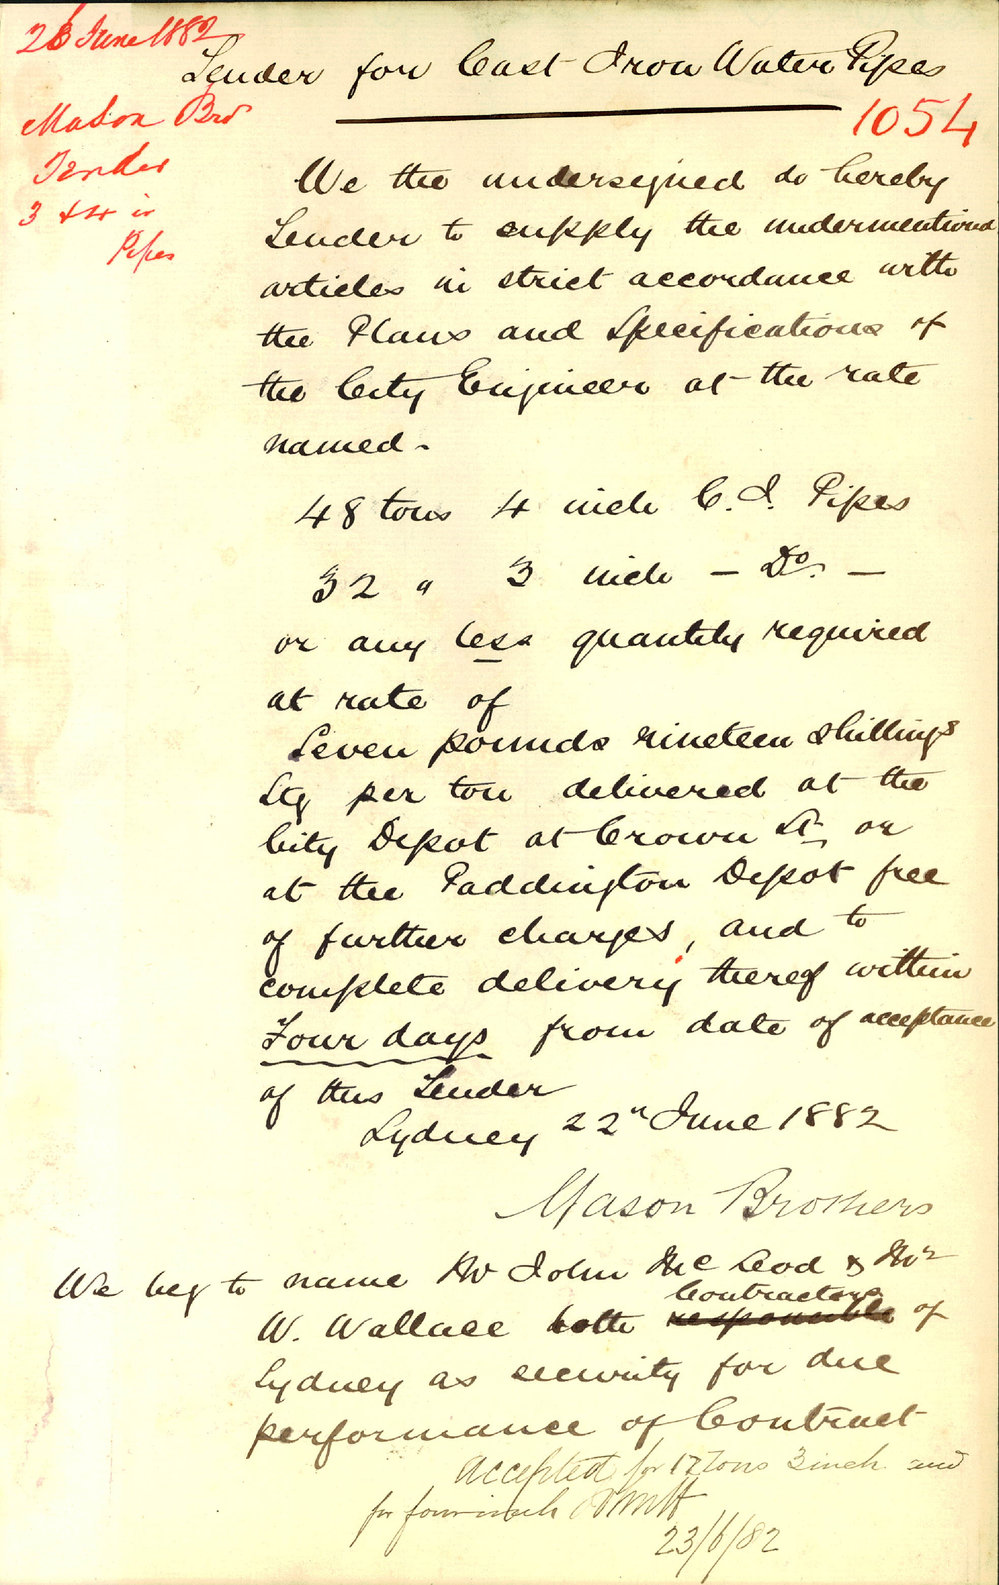 26 June 1882
Tender for Cast Iron Water Pipes
1054
Mason Bros
Tender
3 & 4 in
Pipes
We the undersigned do hereby
Tender to supply the undermentioned
articles in strict accordance with
the Plans and Specifications of
the City Engineer at the rate
named -
48 tons 4 inch C. I. Pipes
32 " 3 inch - Do. -
or any less quantity required
at rate of
Seven pounds nineteen shillings
Stg per ton delivered at the
City Depot at Crown St, or
at the Paddington Depot free
of further charges, and to
complete delivery thereof within
Four days from date of acceptance
of this Tender
Sydney 22n June 1882
Mason Brothers
We beg to name Mr John McLeod & Mr
Contractors
W. Wallace both responsible of
Sydney as security for due
performance of Contract
Accepted for 17 Tons 3 inch and
for four inch
23/6/82